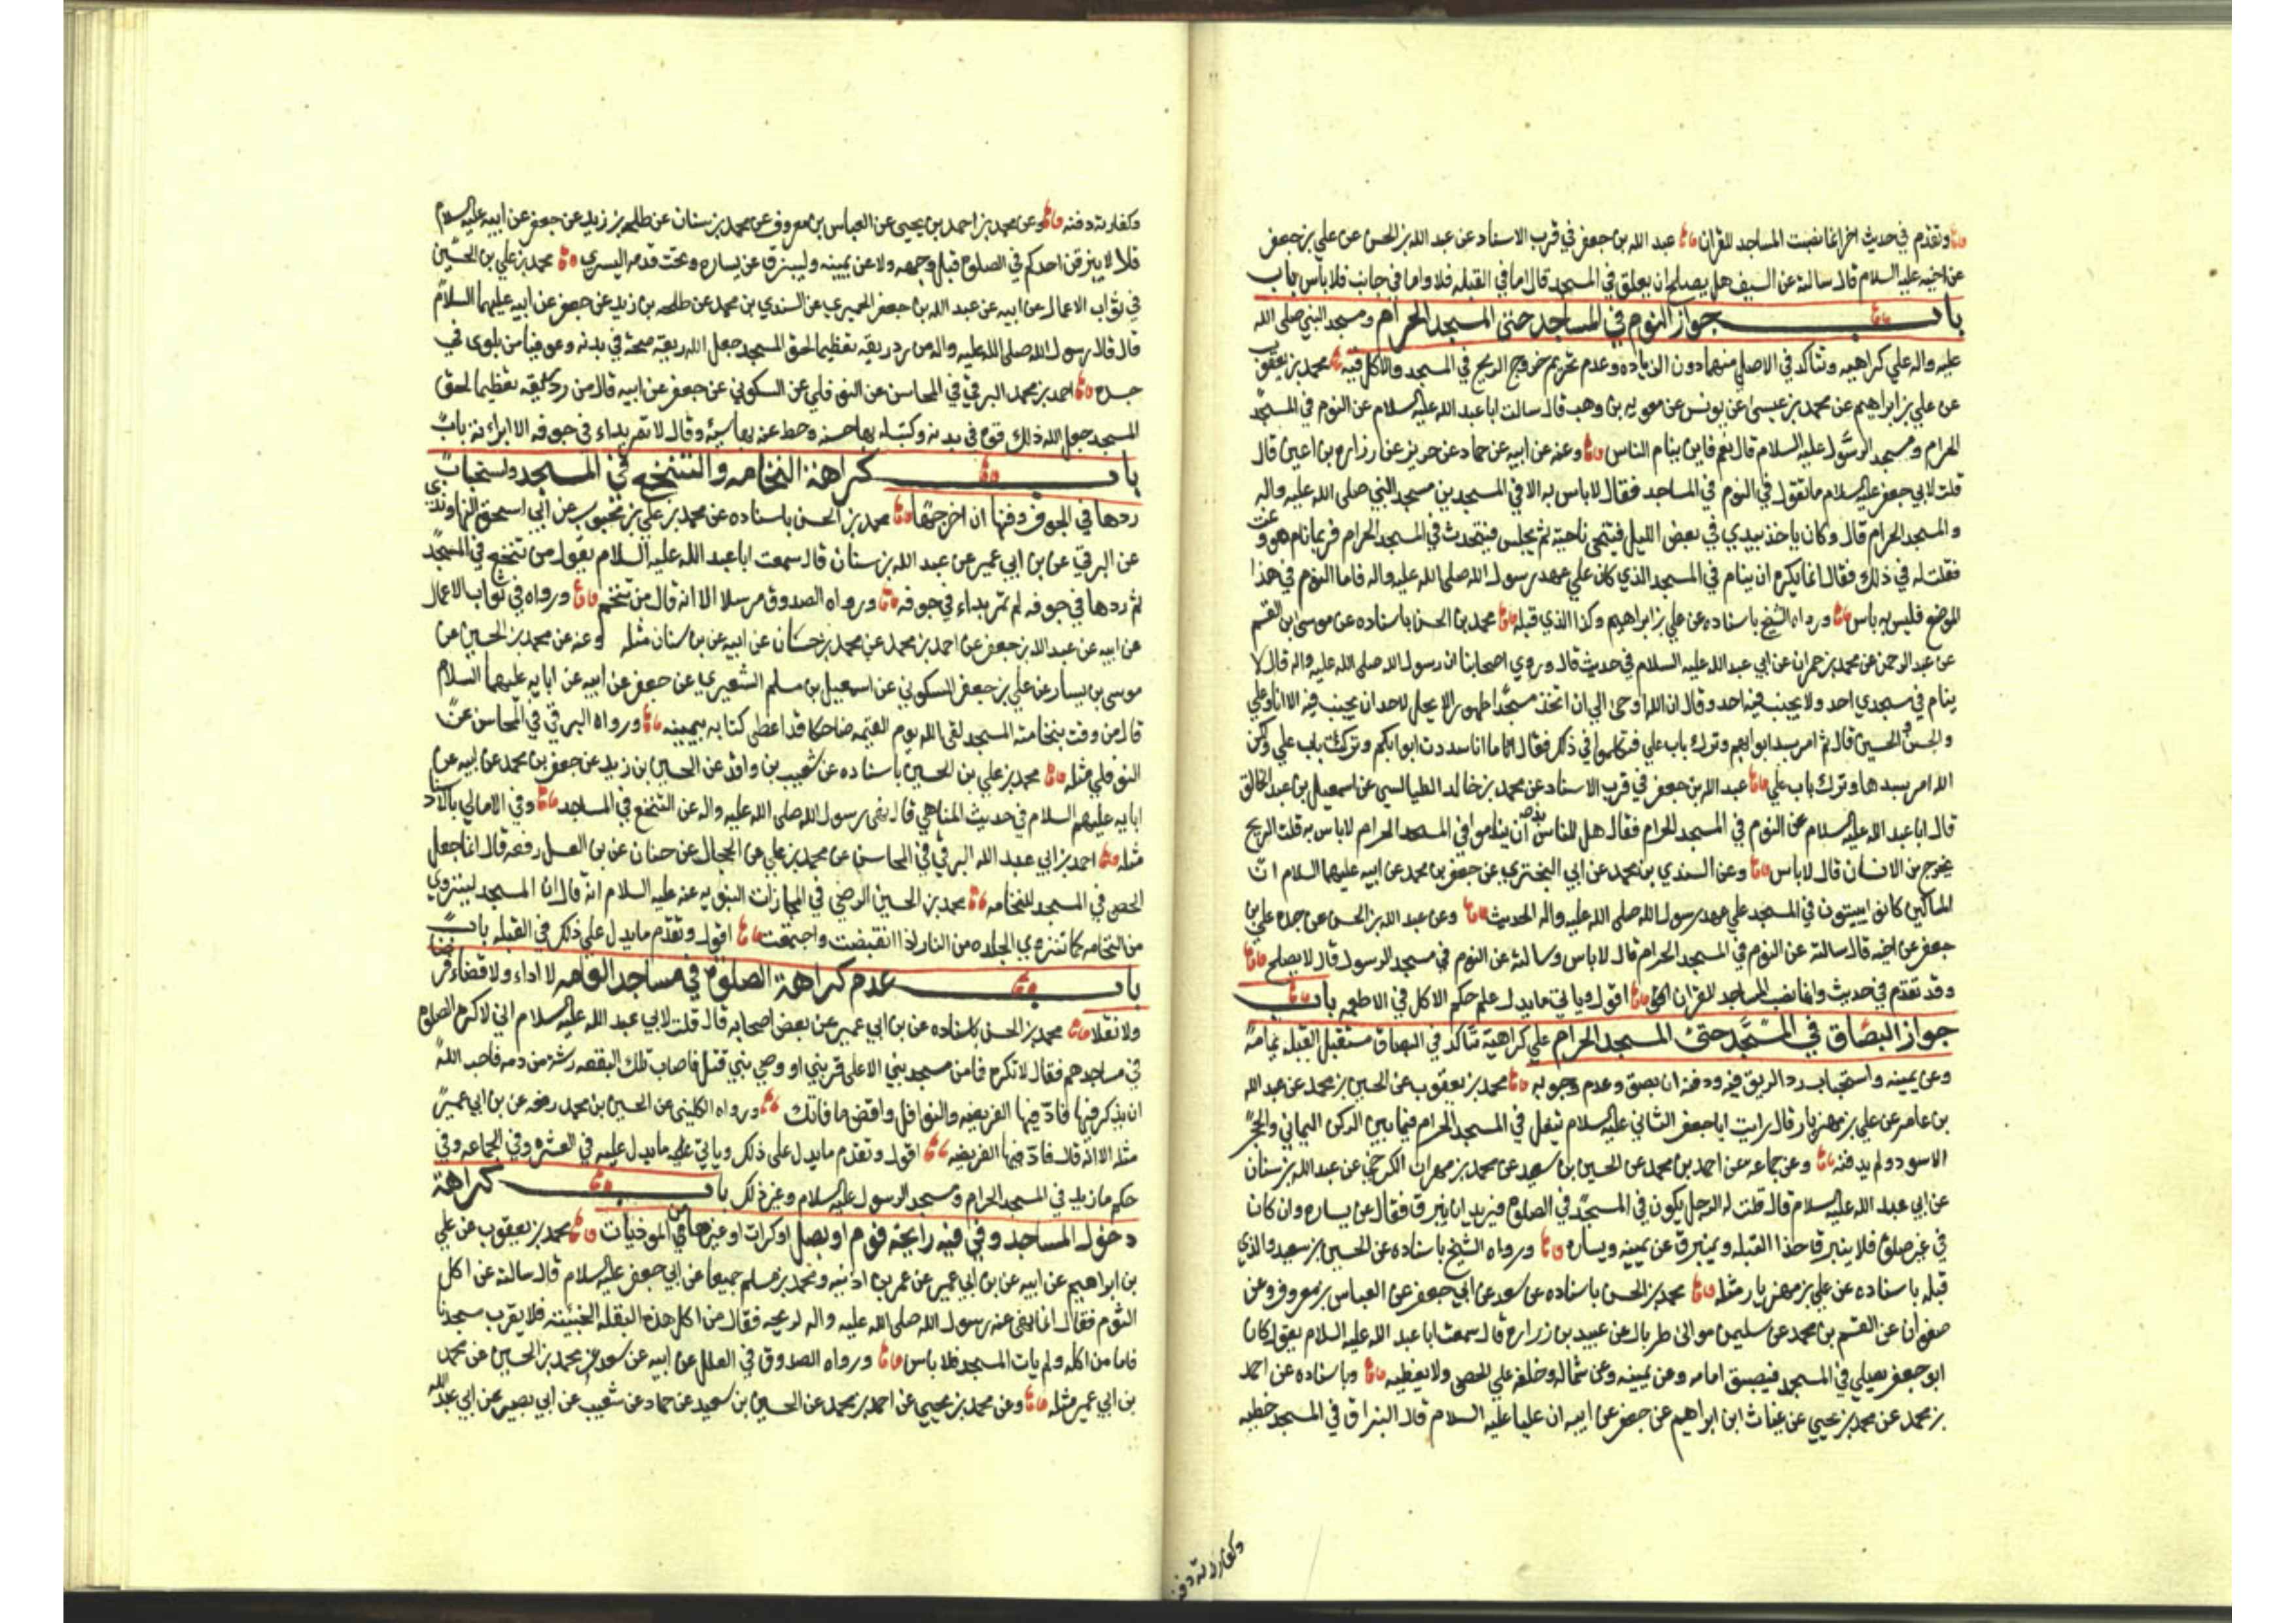 وتقدم في حديث اخر انما نصبت المساجد للقران عبد الله بن جعفر في قرب الاسناد عن عبد الله بن الحسن عن علي بن جعفر
عن اخيه عليه السلام قال سالته عن السيف هل يصلح ان يعلق في المسجد قال اما في القبله فلا واما في جانب فلا بأس باب
باب جواز النوم في المساجد حتى المسجد الحرام ومسجد النبي صلى الله
عليه واله علي كراهيه وتتاكد في الاصلي منهما دون الزياده وعدم تحريم خروج الريح في المسجد والاكل فيه محمد بن يعقوب
عن علي بن ابراهيم عن محمد بن عيسى عن يونس عن معويه بن وهب قال سالت ابا عبد الله عليه السلام عن النوم في المسجد
الحرام ومسجد الرسول عليه السلام قال نعم فاين ينام الناس وعنه عن ابيه عن حماد عن حريز عن زراره بن اعين قال
قلت لابي جعفر عليه السلام ما تقول في النوم في المساجد فقال لا باس به الا في المسجدين مسجد النبي صلى الله عليه واله
والمسجد الحرام قال وكان ياخذ بيدي في بعض الليل فيتنحى ناحية ثم يجلس فيتحدث في المسجد الحرام فربما نام هو و
فقلت له في ذلك فقال انما يكره ان ينام في المسجد الذي كان علي عهد رسول الله صلى الله عليه واله فاما النوم في هذا
الموضع فليس به باس ورواه الشيخ باسناده عن علي بن ابراهيم وكذا الذي قبله محمد بن الحسن باسناده عن موسى ابن القسم
عن عبد الرحمن عن محمد بن حمران عن ابي عبد الله عليه السلام في حديث قال وروي اصحابنا ان رسول الله صلى الله عليه واله قال لا
ينام في مسجدي احد ولا يجنب فيه احد وقال ان الله اوحى الي ان اتخذ مسجدا طهورا لا يحل لاحد ان يجنب فيه الا انا وعلي
والحسن والحسين قال ثم امر بسد ابوابهم وترك باب علي فتكلموا في ذلك فقال اما انا سددت ابوابكم وتركت باب علي ولكن
الله امر بسدها وترك باب علي عبد الله بن جعفر في قرب الاسناد عن محمد بن خالد الطيالسي عن اسمعيل بن عبد الخالق
قال ابا عبد الله عليه السلام عن النوم في المسجد الحرام فقال هل للناس بد ان يناموا في المسجد الحرام لا باس به قلت الريح
يخرج من الانسان قال لا باس وعن السندي بن محمد عن ابي البختري عن جعفر بن محمد عن ابيه عليهما السلام ان
المساكين كانوا يبيتون في المسجد علي عهد رسول الله صلى الله عليه واله الحديث وعن عبد الله بن الحسن عن جده علي بن
جعفر عن اخيه قال سالته عن النوم في المسجد الحرام قال لا باس وسالته عن النوم في مسجد الرسول قال لا يصلح
وقد تقدم في حديث وانما نصب المساجد للقران اقول وياتي ما يدل علي حكم الاكل في الاطعمه باب
جواز البصاق في المسجد حتى المسجد الحرام علي كراهية تتاكد في البصاق مستقبل القبله
وعن يمينه واستحباب رد الريق فيه ودفنه ان بصق وعدم وجوبه محمد بن يعقوب عن الحسين بن محمد عن عبد الله
بن عامر عن علي بن مهزيار قال رايت ابا جعفر الثاني عليه السلام تفل في المسجد الحرام فيما بين الركن اليماني والحجر
الاسود ولم يدفنه وعن جماعه عن احمد بن محمد عن الحسين بن سعيد عن محمد بن مهران الكرخي عن عبد الله بن سنان
عن ابي عبد الله عليه السلام قال قلت له الرجل يكون في المسجد في الصلوة فيريد ان يبزق فقال عن يساره وان كان
في غير صلوة فلا يبزق حذا القبله ويبزق عن يمينه ويساره ورواه الشيخ باسناده عن الحسين بن سعيد والذي
قبله باسناده عن علي بن مهزيار مثله محمد بن الحسن باسناده عن سعد عن ابي جعفر عن العباس بن معروف وعن
صفوان عن القسم بن محمد عن سليمن مولى طربال عن عبيد بن زراره قال سمعت ابا عبد الله عليه السلام يقول كان
ابو جعفر يصلي في المسجد فيبصق امامه وعن يمينه وعن شماله وخلفه علي الحصى ولا يغطيه وباسناده عن احمد
بن محمد عن محمد بن يحيى عن غياث ابن ابراهيم عن جعفر عن ابيه ان عليا عليه السلام قال البزاق في المسجد خطيه
وكفارته دفنه
وكفارته دفنه وعن محمد بن احمد بن يحيى عن العباس بن معروف عن محمد بن سنان عن طلحه بن زيد عن جعفر عن ابيه عليه السلام
قال لا يبزقن احدكم في الصلوة قبل وجهه ولا عن يمينه وليبزق عن يساره وتحت قدمه اليسري محمد بن علي بن الحسين
في ثواب الاعمال عن ابيه عن عبد الله بن جعفر الحميري عن السندي بن محمد عن طلحه بن زيد عن جعفر عن ابيه عليهما السلام
قال قال رسول الله صلى الله عليه واله من رد ريقه تعظيما لحق المسجد جعل الله ريقه صحة في بدنه وعوفي من بلوى في
جسده احمد بن محمد البرقي في المحاسن عن النوفلي عن السكوني عن جعفر عن ابيه قال من رد ريقه تعظيما لحق
المسجد جعل الله ذلك قوة في بدنه وكتب له بها حسنه وحط عنه بها سيئه وقال لا تمر بداء في جوفه الا ابراته باب
باب كراهة النخامه والتنخع في المسجد واستحباب
ردها في الجوف ودفنها ان اخرجها محمد بن الحسن باسناده عن محمد بن علي بن محبوب عن ابي اسحق النهاوندي
عن البرقي عن بن ابي عمير عن عبد الله بن سنان قال سمعت ابا عبد الله عليه السلام يقول من تنخع في المسجد
ثم ردها في جوفه لم تمر بداء في جوفه ورواه الصدوق مرسلا الا انه قال من تنخم ورواه في ثواب الاعمال
عن ابيه عن عبد الله بن جعفر عن احمد بن محمد عن محمد بن حسان عن ابيه عن بن سنان مثله وعنه عن محمد بن الحسين عن
موسى بن يسار عن علي بن جعفر السكوني عن اسمعيل بن مسلم الشعيري عن جعفر عن ابيه عن ابايه عليهما السلام
قال من وقت بنخامته المسجد لقى الله يوم القيمه ضاحكا قد اعطي كتابه بيمينه ورواه البرقي في المحاسن عن
النوفلي مثله محمد بن علي بن الحسين باسناده عن شعيب بن واقد عن الحسين بن زيد عن جعفر بن محمد عن ابيه عن
ابايه عليهم السلام في حديث المناهي قال نهى رسول الله صلى الله عليه واله عن التنخع في المساجد وفي الامالي بالاسناد
مثله احمد بن ابي عبد الله البرقي في المحاسن عن محمد بن علي عن الحجال عن حنان عن بن العسل رفعه قال انما جعل
الحصى في المسجد للنخامه محمد بن الحسين الرضي في المجازات النبويه عنه عليه السلام انه قال ان المسجد لينزوي
من النخامه كما تنزوي الجلده من النار اذا انقبضت واجتمعت اقول وتقدم ما يدل علي ذلك في القبله باب
باب عدم كراهة الصلوة في مساجد العامه لا اداء ولا قضاء فرضا
ولا نفلا محمد بن الحسن باسناده عن بن ابي عمير عن بعض اصحابه قال قلت لابي عبد الله عليه السلام اني لاكره الصلوة
في مساجدهم فقال لا تكره فما من مسجد بني الا على قبر نبي او وصي نبي قتل فاصاب تلك البقعه رشة من دمه فاحب الله
ان يذكر فيها فادّ فيها الفريضه والنوافل واقض ما فاتك ورواه الكليني عن الحسين بن محمد رفعه عن بن ابي عمير
مثله الا انه قال فادّ فيها الفريضه اقول وتقدم ما يدل على ذلك وياتي ما يدل عليه في العشره وفي الجماعه وفي
حكم ما زيد في المسجد الحرام ومسجد الرسول عليه السلام وغير ذلك باب كراهة
دخول المساجد وفي فيه رايحة ثوم او بصل او كراث او غيرها من الموذيات محمد بن يعقوب عن علي
بن ابراهيم عن ابيه عن بن ابي عمير عن عمر بن اذينه ومحمد بن مسلم جميعا عن ابي جعفر عليه السلام قال سالته عن اكل
الثوم فقال انما نهى عنه رسول الله صلى الله عليه واله لريحه فقال من اكل هذه البقله الخبيثه فلا يقرب مسجدنا
فاما من اكله ولم يات المسجد فلا باس ورواه الصدوق في العلل عن ابيه عن سعد عن محمد بن الحسين عن محمد
بن ابي عمير مثله وعن محمد بن يحيى عن احمد بن محمد عن الحسين بن سعيد عن حماد عن شعيب عن ابي بصير عن ابي عبد الله